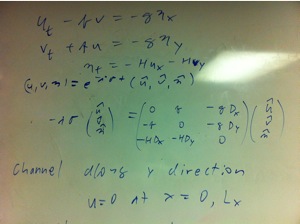 u_t - fv = -gη_x
v_t + fu = -gη_y
η_t = -Hu_x - Hv_y
(u, v, η) = e^{-iσt} (û, v̂, η̂)
-iσ (û v̂ η̂) = (0 f -gD_x; -f 0 -gD_y; -HD_x -HD_y 0) (û v̂ η̂)
Channel along y direction
u=0 at x=0, L_x